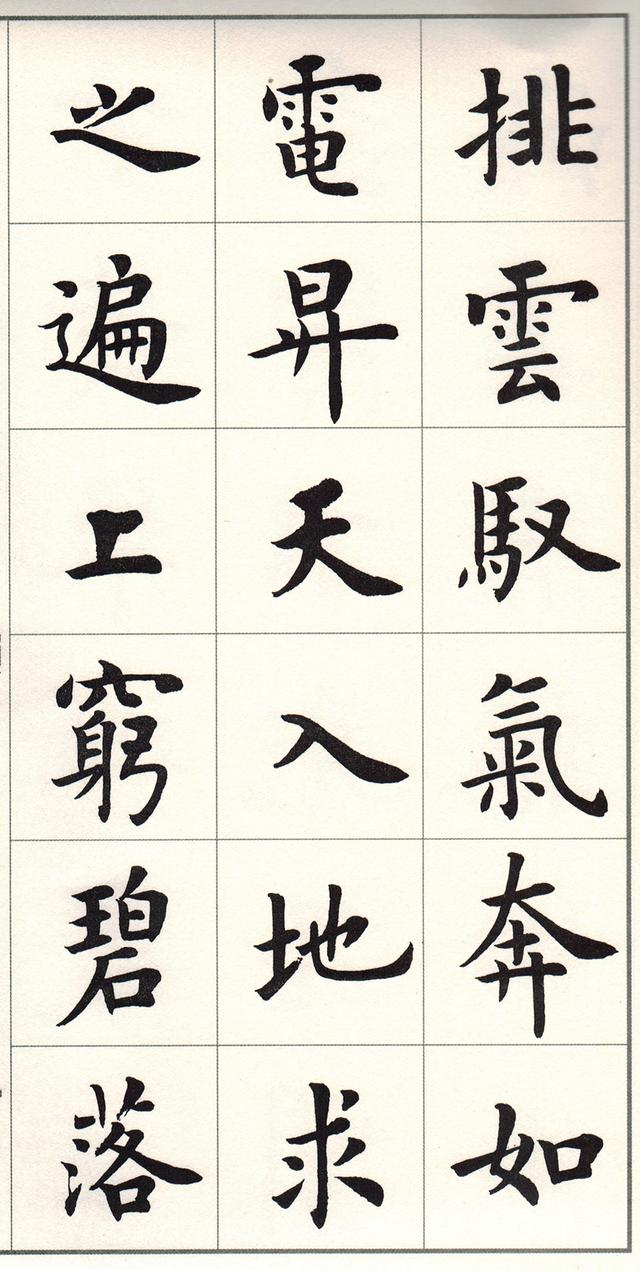 排雲馭氣奔如
電昇天入地求
之遍上窮碧落